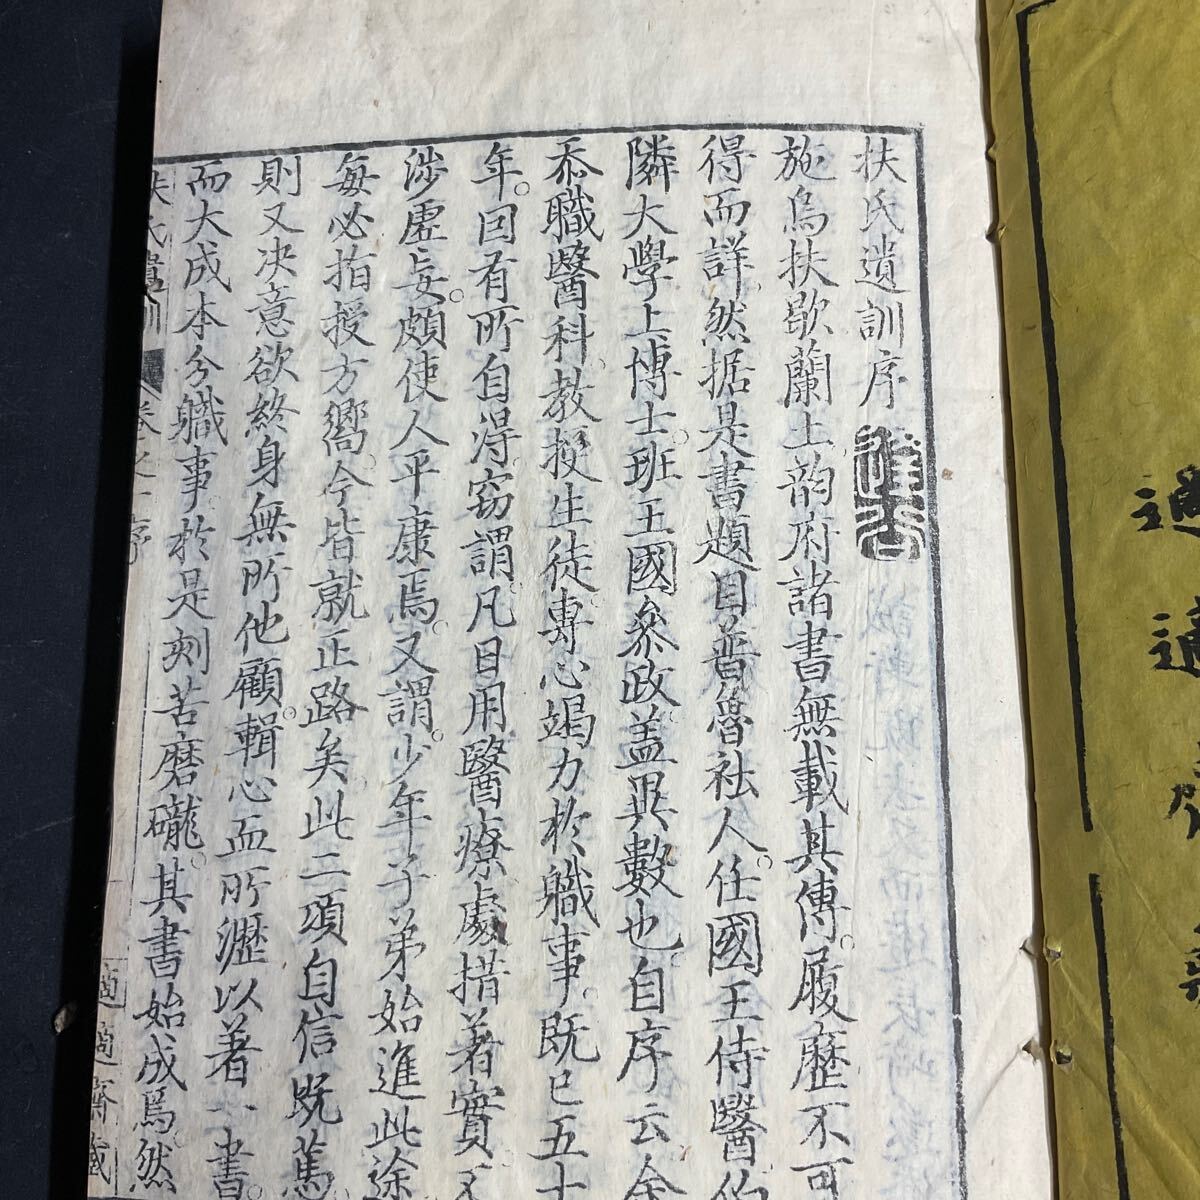 扶氏遺訓序
施烏扶歇蘭土韵府諸書無載其傳。履歷不可
得而詳。然据是書題目普魯社人。任國王侍醫伯
隣大學上博士。班王國參政。盖異數也。自序云。余
忝職醫科。教授生徒。專心竭力於職事。既已五十
年。回有所自得。窃謂。凡日用醫療處措著實不
涉虛妄。頗使人平康焉。又謂。少年子弟始進此途
每必指授方嚮。今皆就正路矣。此二項自信既篤
則又决意欲終身無所他顧。輯心血所瀝以著一書。
而大成本分職事。於是刻苦磨礲。其書始成焉。然
扶氏遺訓 卷之一序 適適齋藏
適適齋藏